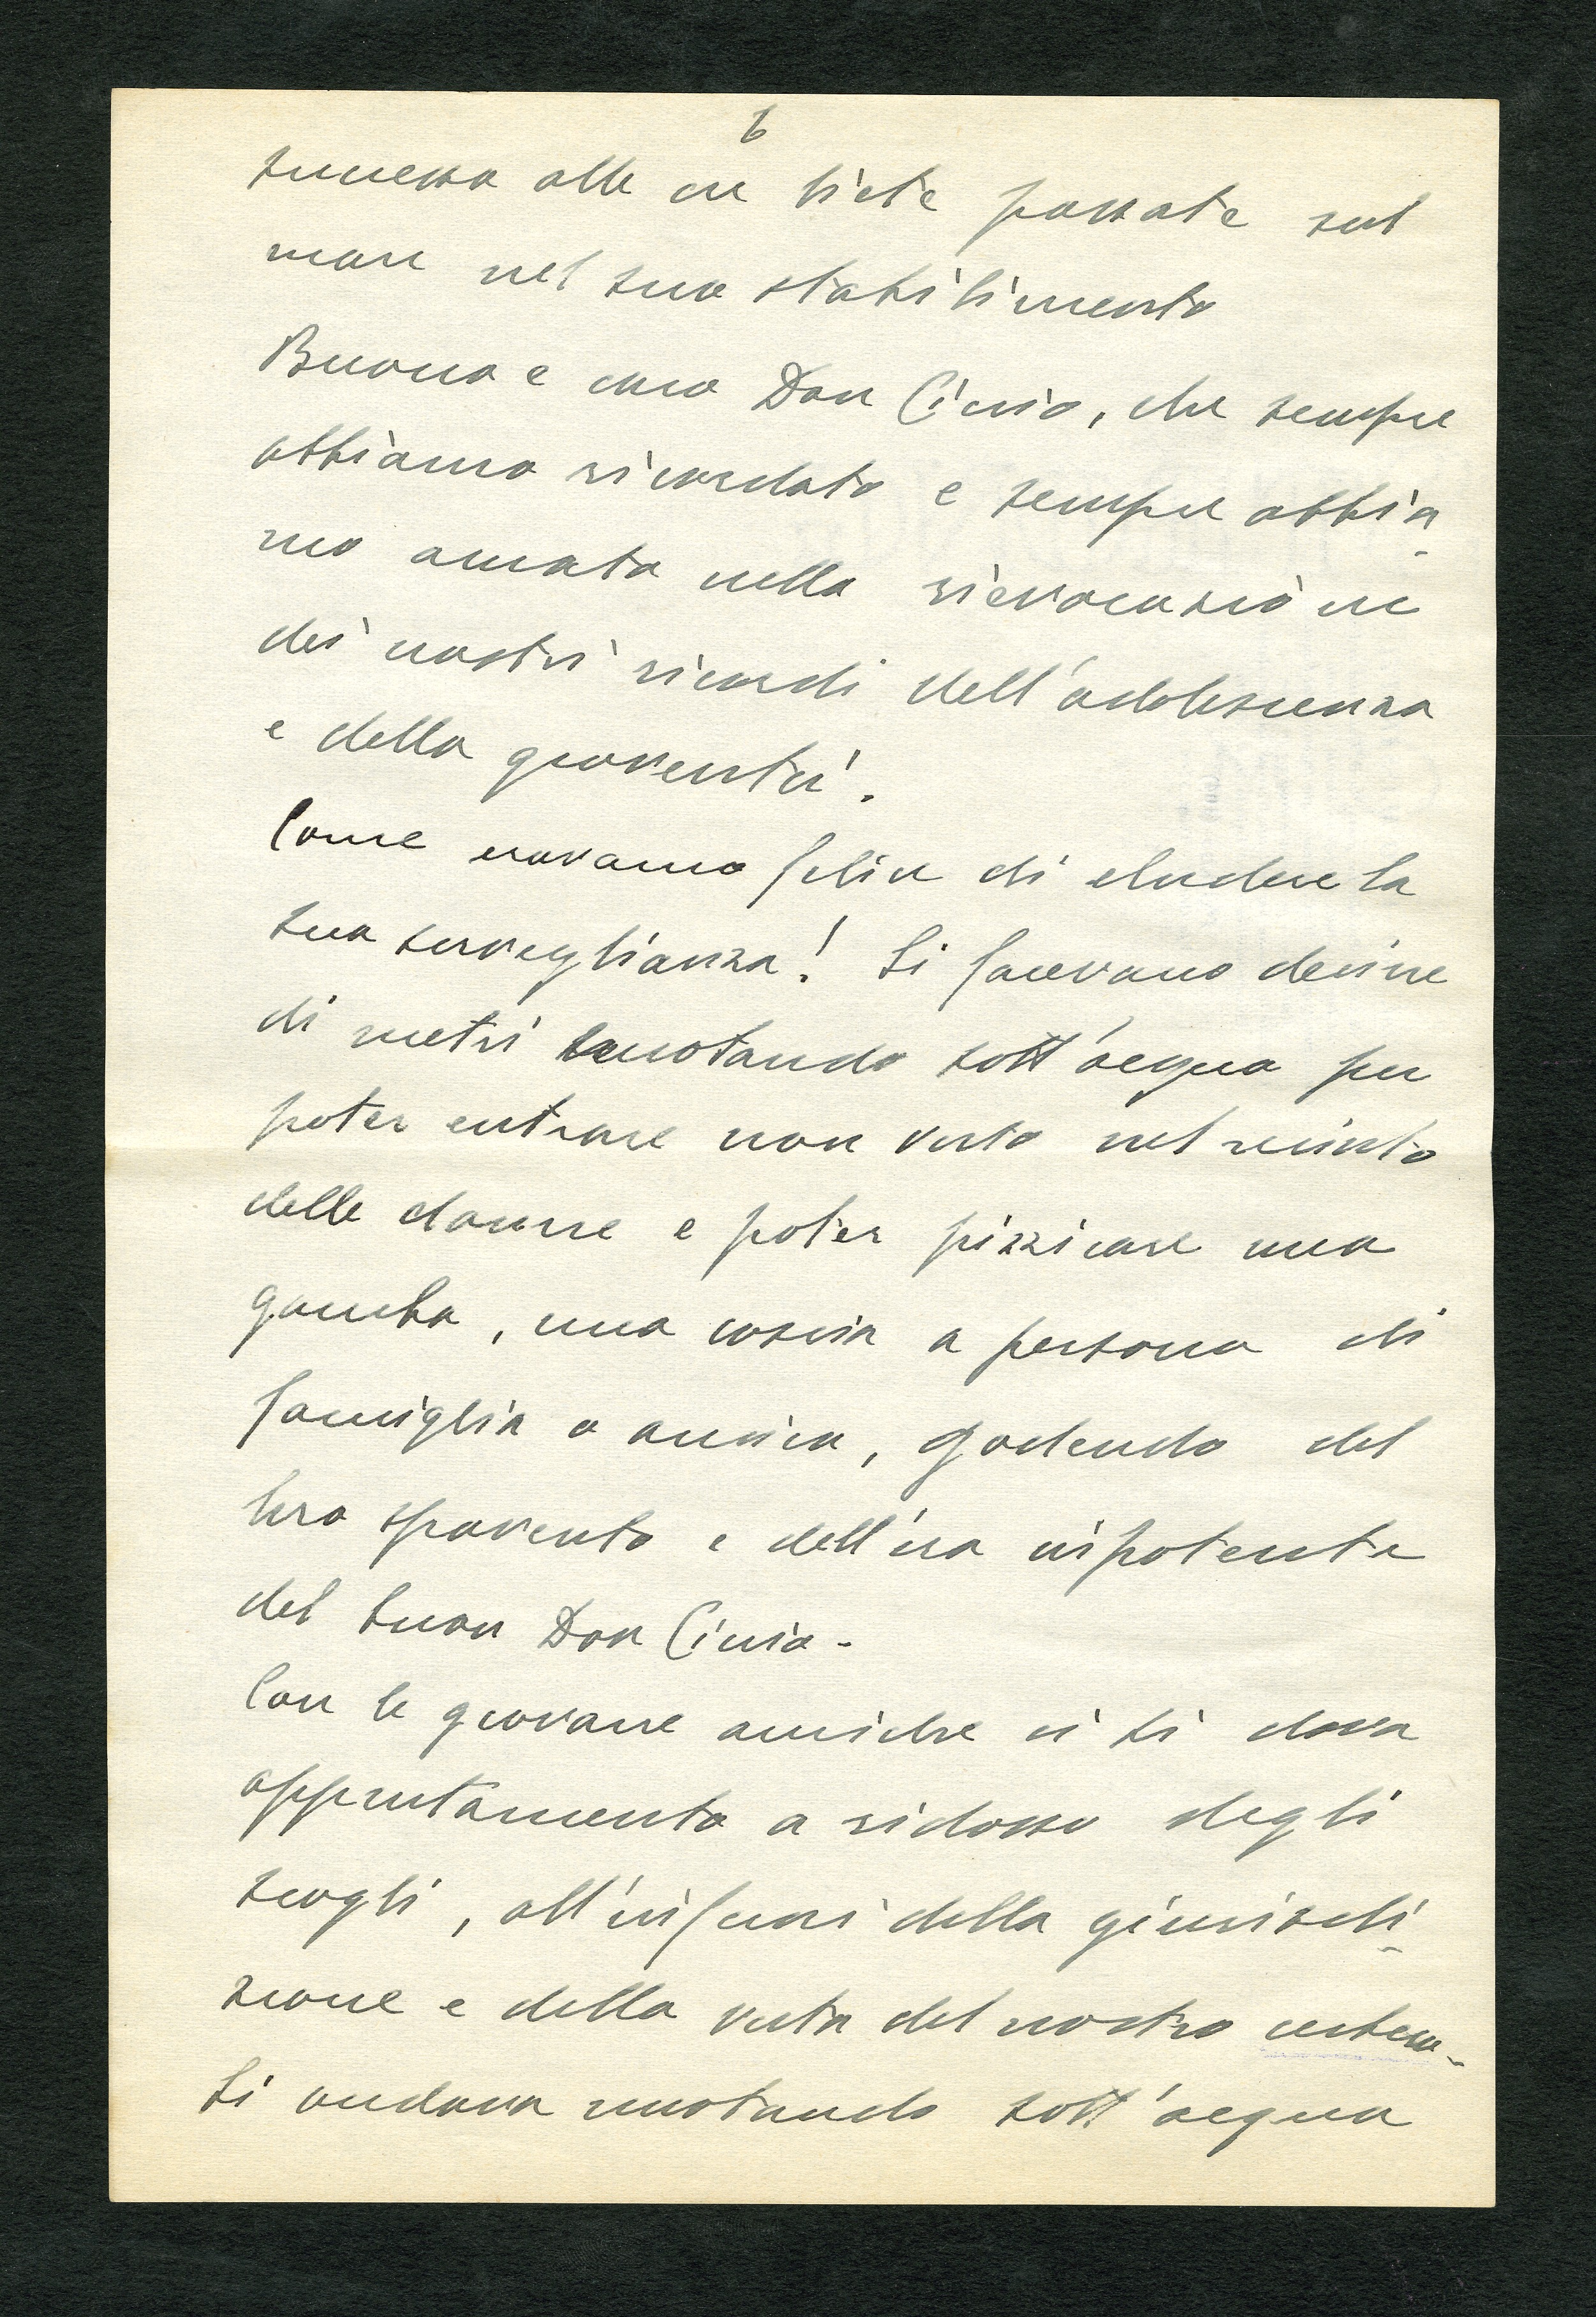 6
connessa alle ore liete passate sul
mare nel suo stabilimento
Buono e caro Don Cinio, che sempre
abbiamo ricordato e sempre abbia-
mo amato nella rievocazione
dei nostri ricordi dell'adolescenza
e della gioventù.
Come eravamo felici di eludere la
sua sorveglianza! Si facevano decine
di metri nuotando sott'acqua per
poter entrare non visto nel recinto
delle donne e poter pizzicare una
gamba, una coscia a persona di
famiglia o amica, godendo del
loro spavento e dell'ira impotente
del buon Don Cinio -
Con le giovane amiche ci si dava
appuntamento a ridosso degli
scogli, all'infuori della giurisdi-
zione e della vista del nostro
Si andava nuotando sott'acqua